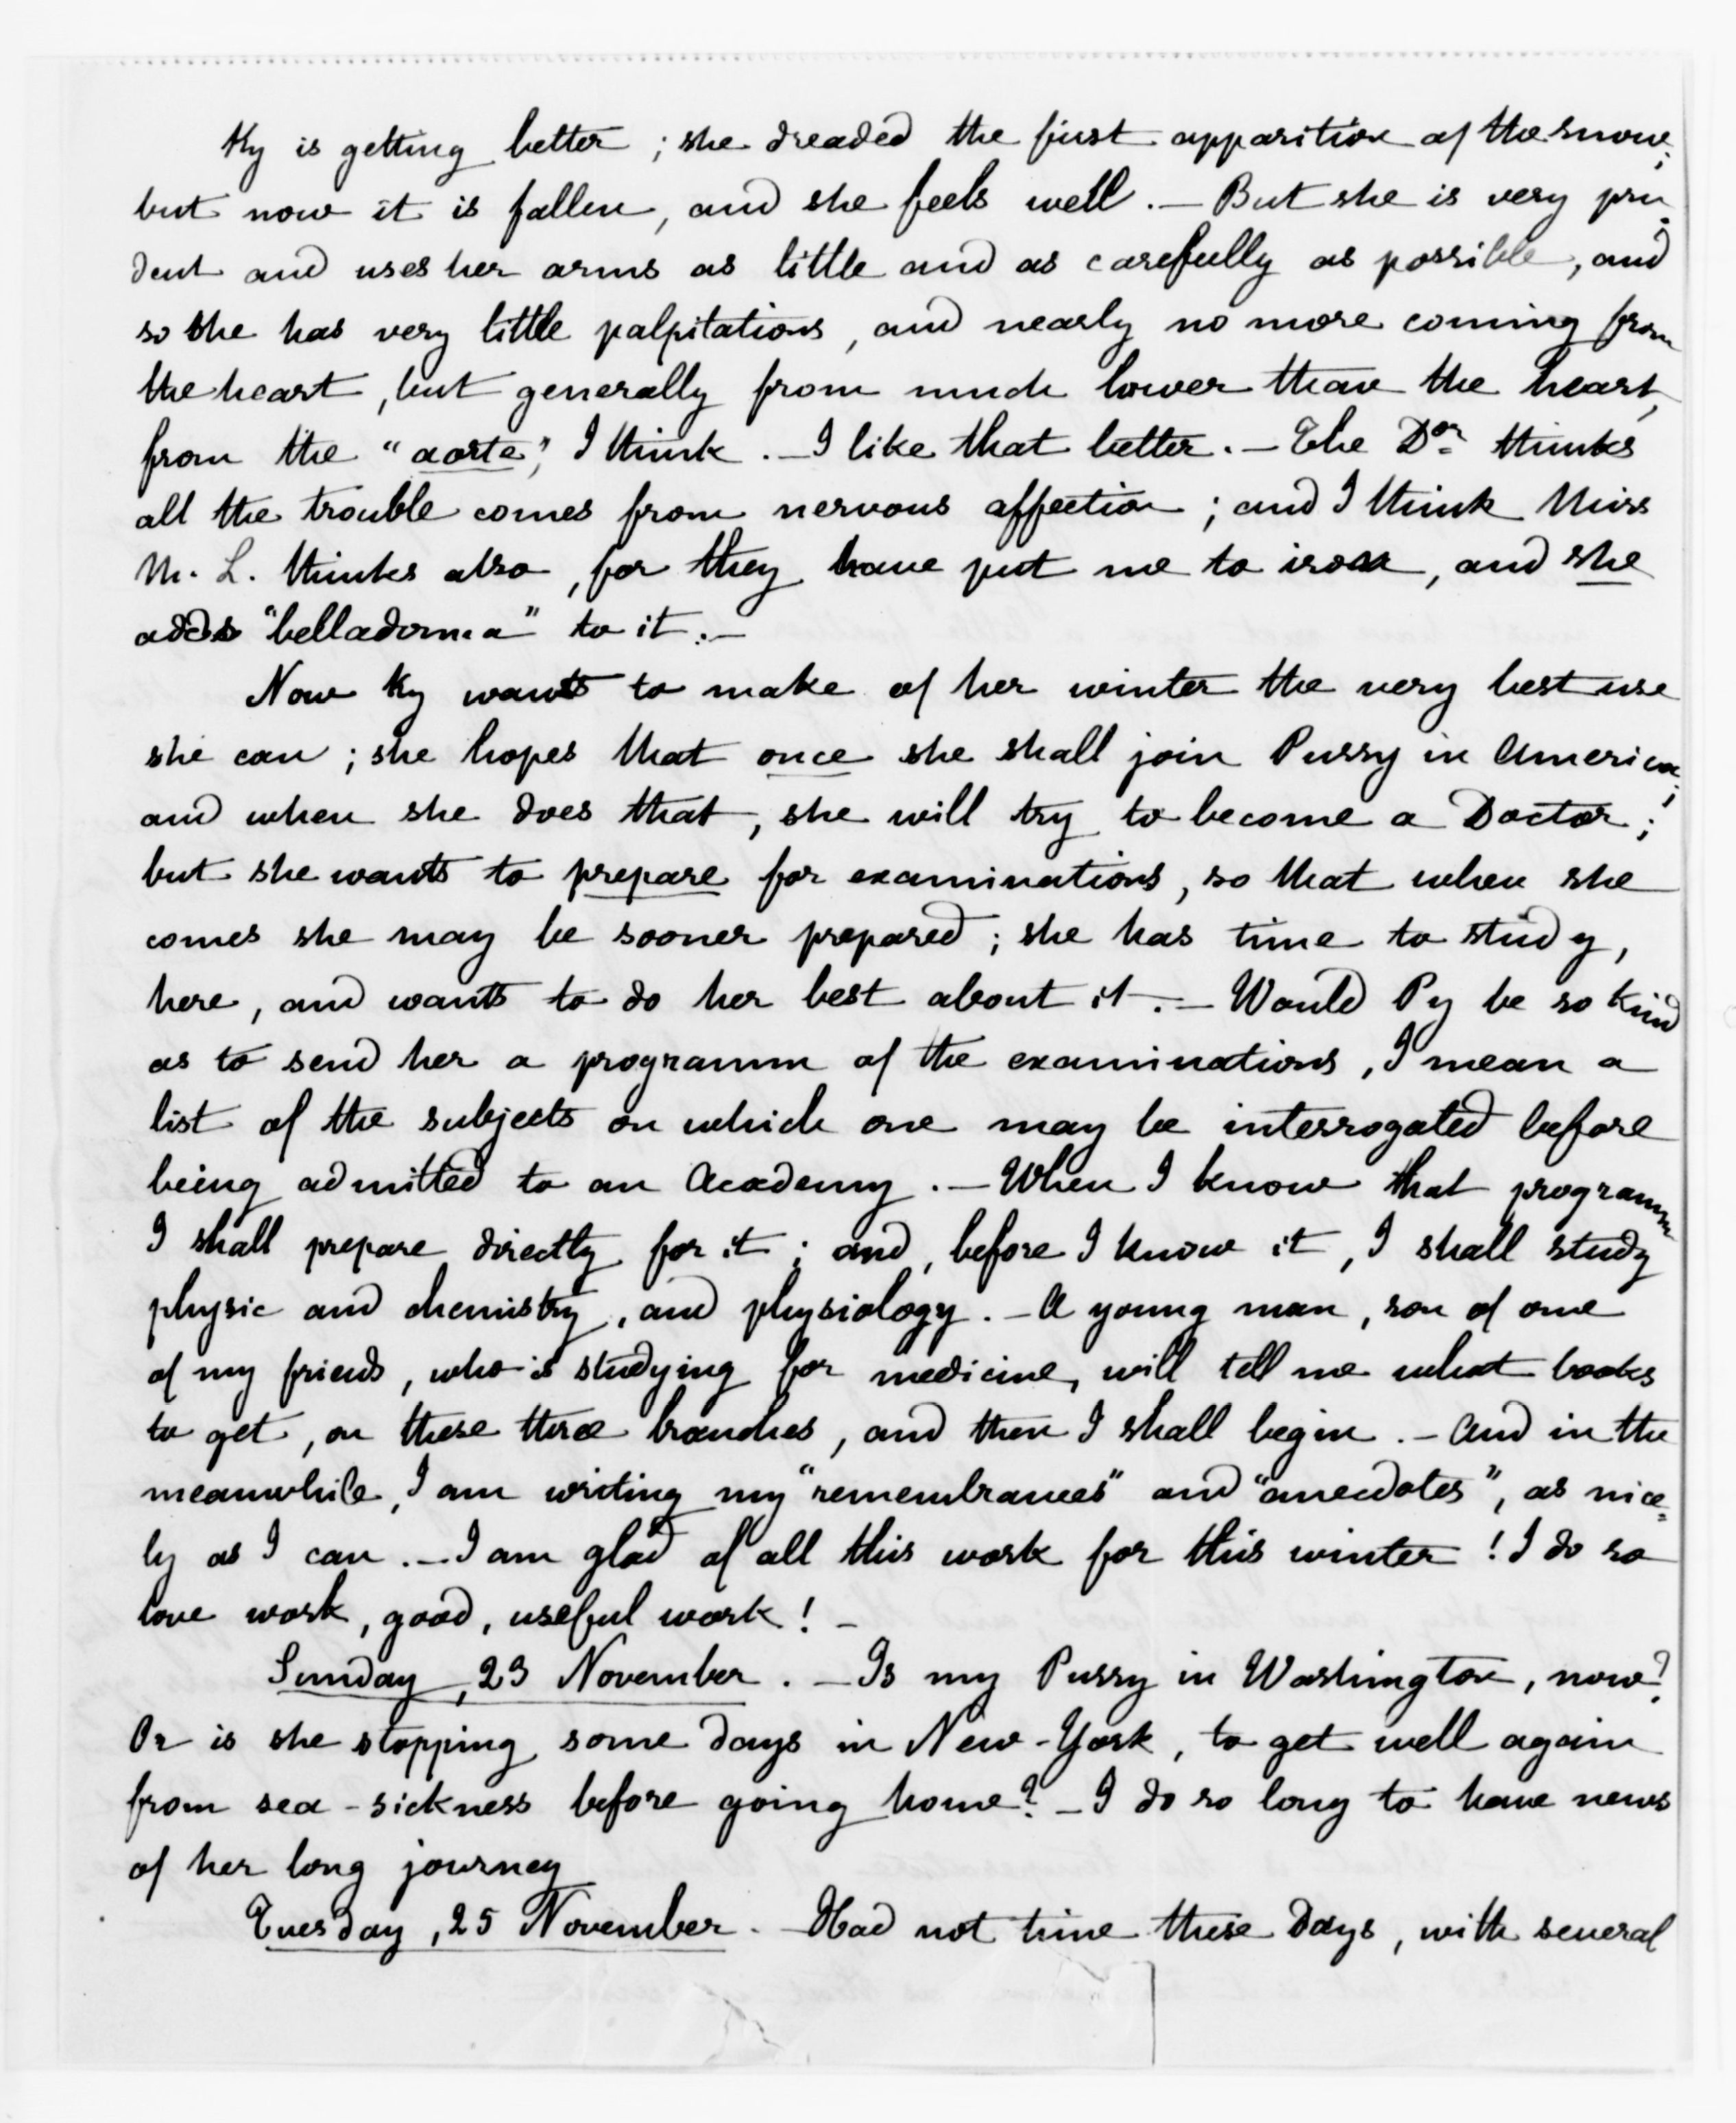 Ky is getting better ; she dreaded the first apparition of the snow;
but now it is fallen, and she feels well . — But she is very pru=
dent and uses her arms as little and as carefully as possible, and
so she has very little palpitations, and nearly no more coming from
the heart, but generally from much lower than the heart,
from the "aorte", I think . — I like that better . — The Dor thinks
all the trouble comes from nervous affection ; and I think Miss
M. L. thinks also, for they have put me to iron, and she
adds "belladonna" to it . —
Now Ky wants to make of her winter the very best use
she can ; she hopes that once she shall join Pussy in America;
and when she does that, she will try to become a Doctor ;
but she wants to prepare for examinations, so that when she
comes she may be sooner prepared ; she has time to study,
here, and wants to do her best about it . — Would Py be so kind
as to send her a programm of the examinations, I mean a
list of the subjects on which one may be interrogated before
being admitted to an Academy . — When I know that programm
I shall prepare directly for it ; and, before I know it, I shall study
physic and chemistry, and physiology . — A young man, son of one
of my friends, who is studying for medicine, will tell me what books
to get, on these three branches, and then I shall begin . — And in the
meanwhile, I am writing my "remembrances" and "anecdotes", as nice=
ly as I can . — I am glad of all this work for this winter ! I do so
love work, good, useful work ! —
Sunday, 23 November . — Is my Pussy in Washington, now ?
Or is she stopping some days in New-York, to get well again
from sea-sickness before going home ? — I do so long to have news
of her long journey
Tuesday, 25 November . — Had not time these days, with several